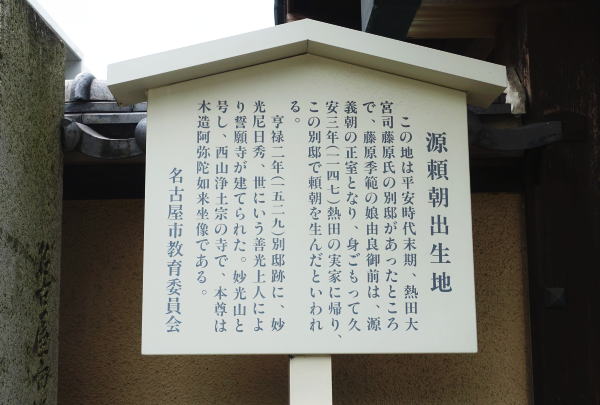 源頼朝出生地
この地は平安時代末期、熱田大
宮司藤原氏の別邸があったところ
で、藤原季範の娘由良御前は、源
義朝の正室となり、身ごもって久
安三年(一一四七)熱田の実家に帰り、
この別邸で頼朝を生んだといわれ
る。
亨禄二年(一五二九)別邸跡に、妙
光尼日秀、世にいう善光上人によ
り誓願寺が建てられた。妙光山と
号し、西山浄土宗の寺で、本尊は
木造阿弥陀如来坐像である。
名古屋市教育委員会
名古屋市